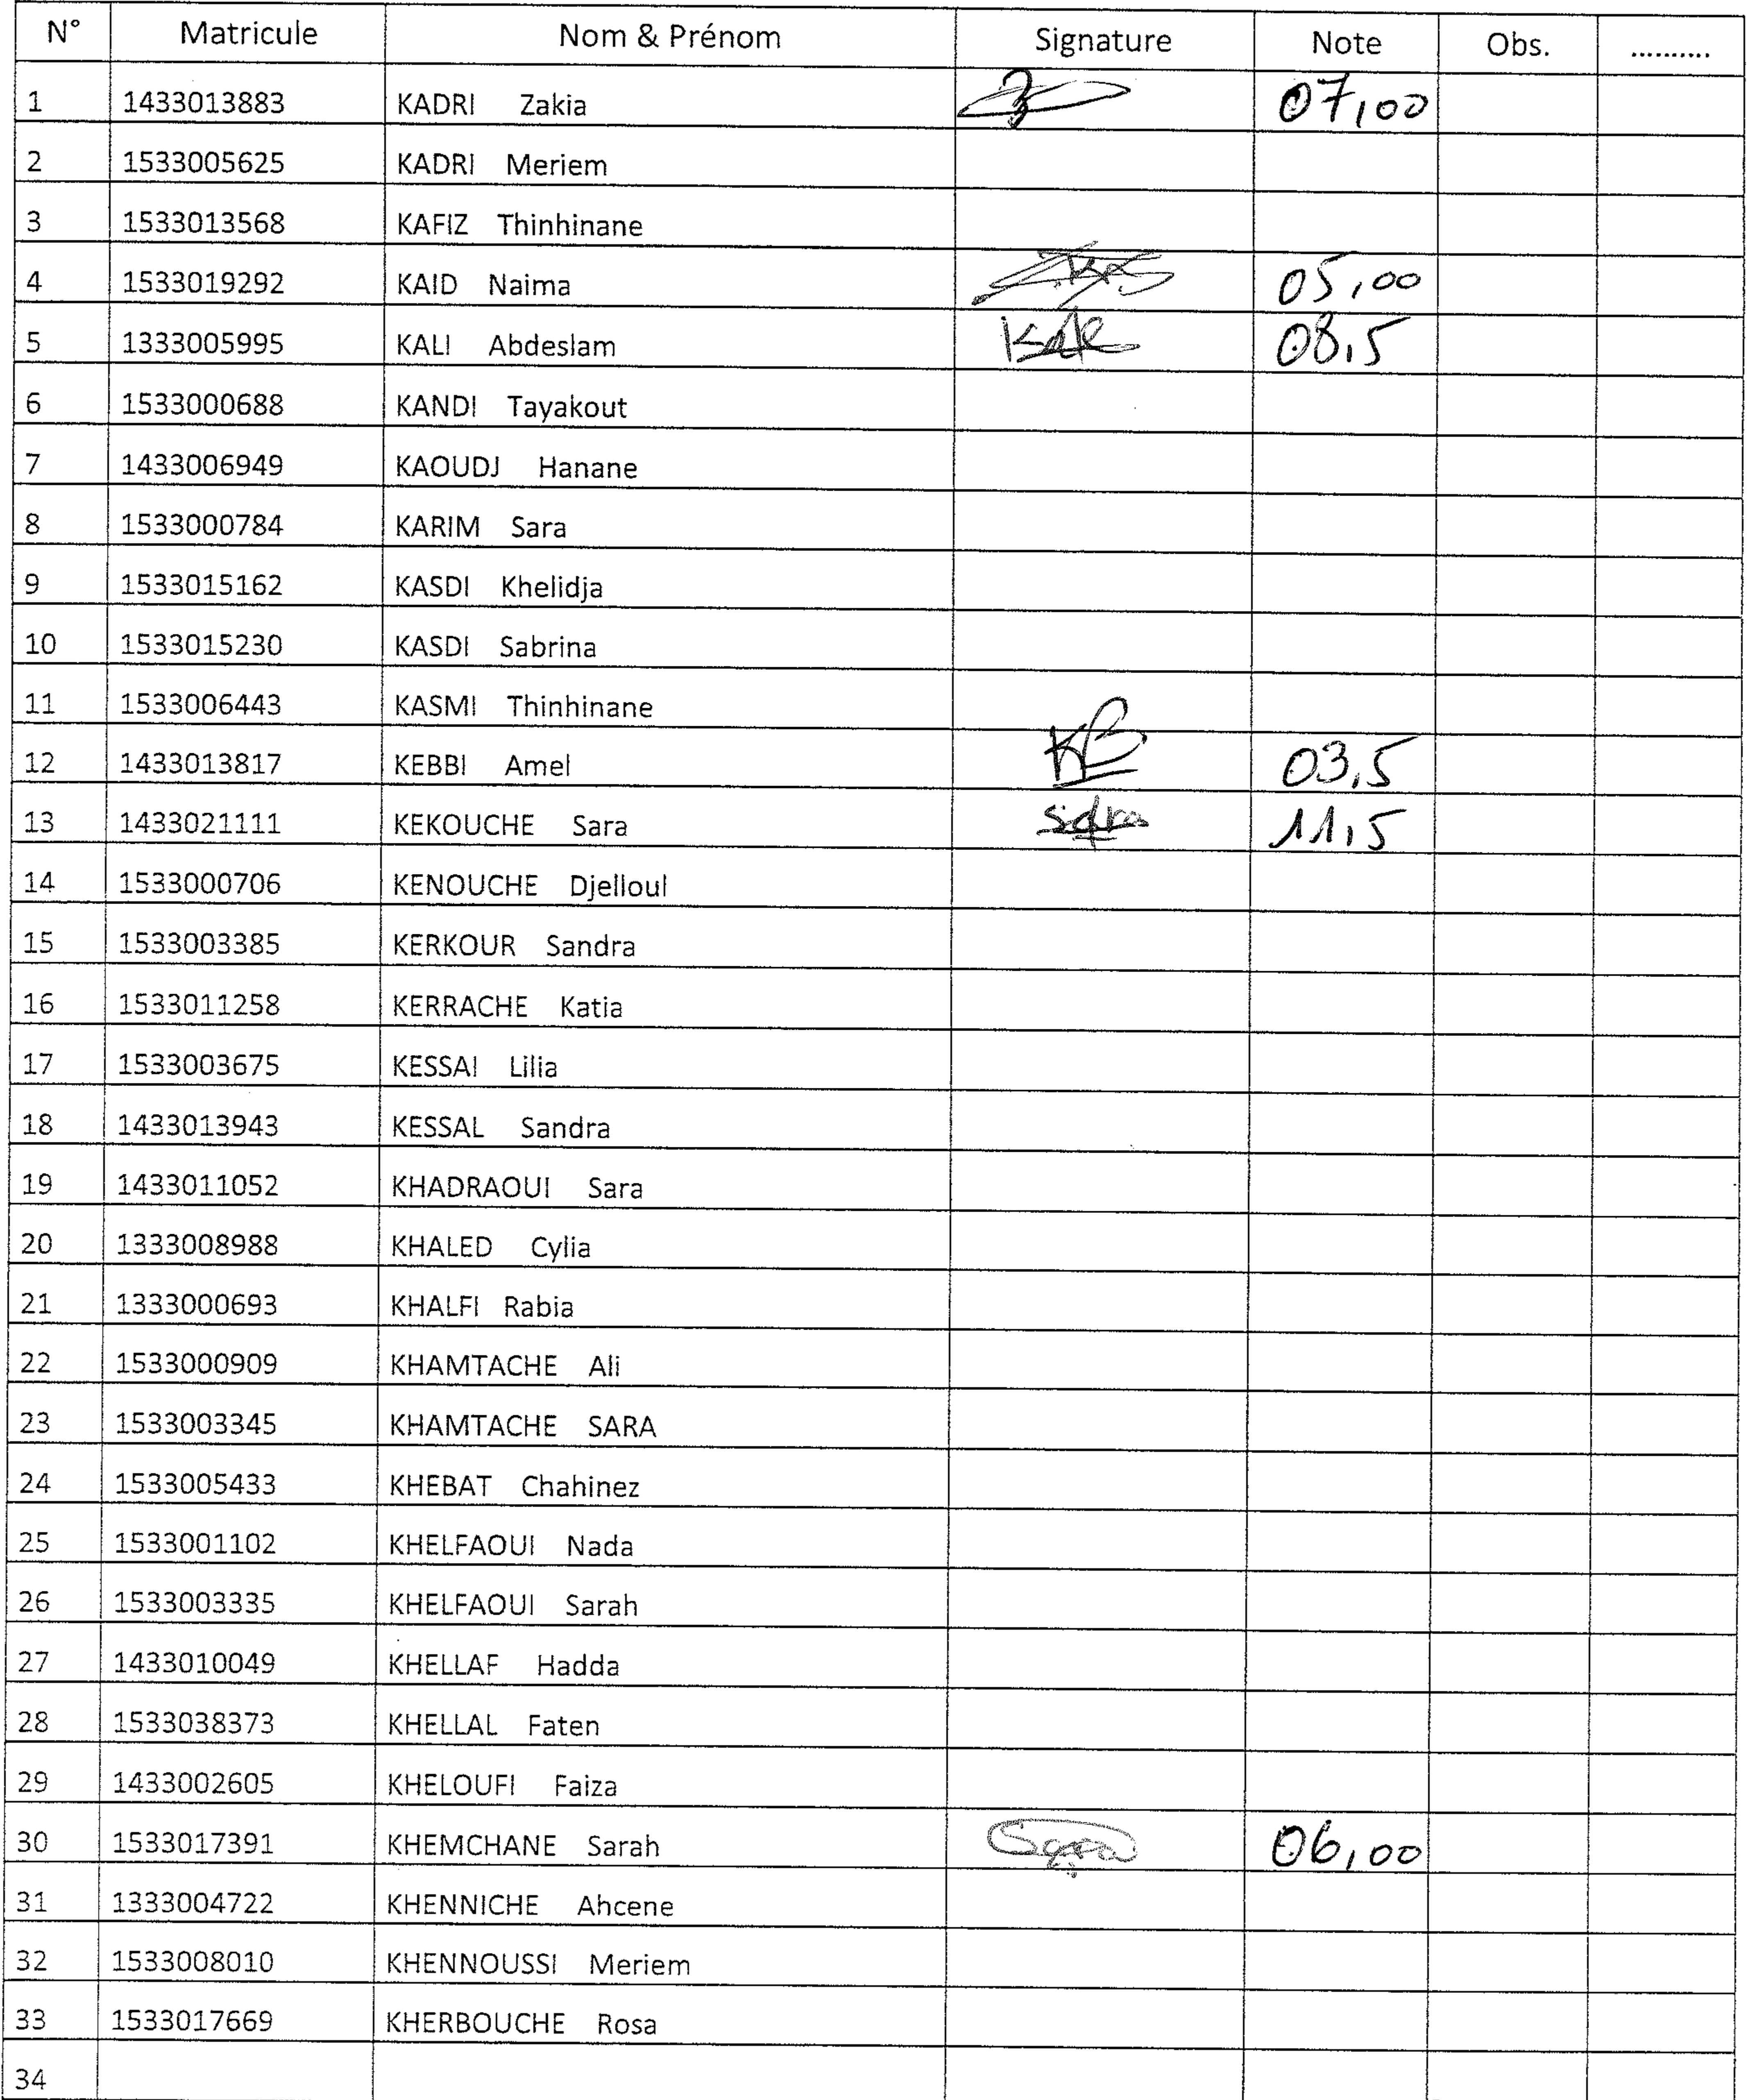 N° Matricule Nom & Prénom Signature Note Obs. ..........
1 1433013883 KADRI Zakia 07,00
2 1533005625 KADRI Meriem
3 1533013568 KAFIZ Thinhinane
4 1533019292 KAID Naima 05,00
5 1333005995 KALI Abdeslam 08,5
6 1533000688 KANDI Tayakout
7 1433006949 KAOUDJ Hanane
8 1533000784 KARIM Sara
9 1533015162 KASDI Khelidja
10 1533015230 KASDI Sabrina
11 1533006443 KASMI Thinhinane
12 1433013817 KEBBI Amel KB 03,5
13 1433021111 KEKOUCHE Sara 11,5
14 1533000706 KENOUCHE Djelloul
15 1533003385 KERKOUR Sandra
16 1533011258 KERRACHE Katia
17 1533003675 KESSAI Lilia
18 1433013943 KESSAL Sandra
19 1433011052 KHADRAOUI Sara
20 1333008988 KHALED Cylia
21 1333000693 KHALFI Rabia
22 1533000909 KHAMTACHE Ali
23 1533003345 KHAMTACHE SARA
24 1533005433 KHEBAT Chahinez
25 1533001102 KHELFAOUI Nada
26 1533003335 KHELFAOUI Sarah
27 1433010049 KHELLAF Hadda
28 1533038373 KHELLAL Faten
29 1433002605 KHELOUFI Faiza
30 1533017391 KHEMCHANE Sarah 06,00
31 1333004722 KHENNICHE Ahcene
32 1533008010 KHENNOUSSI Meriem
33 1533017669 KHERBOUCHE Rosa
34